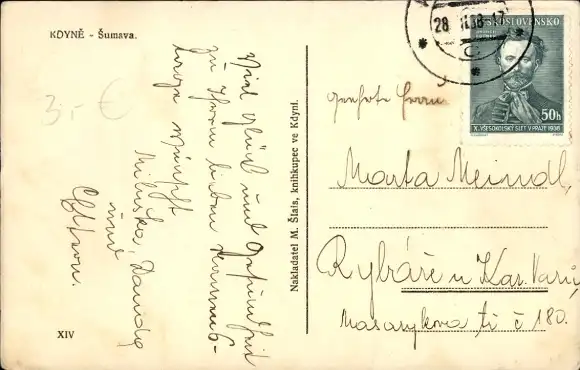 KDYNĚ - Šumava.
3,- €
Viel Glück und Gesundheit
zu Ihrem lieben Namens-
tage wünscht
Miluška,
und
Eltern.
XIV
Nakladatel M. Šlais, knihkupec ve Kdyni.
28
ČESKOSLOVENSKO
50h
X. VŠESOKOLSKÝ SLET V PRAZE 1938
geehrte
Marta Meindl,
Rybáře u Kar. Varů,
Masarykova tř. č 180.